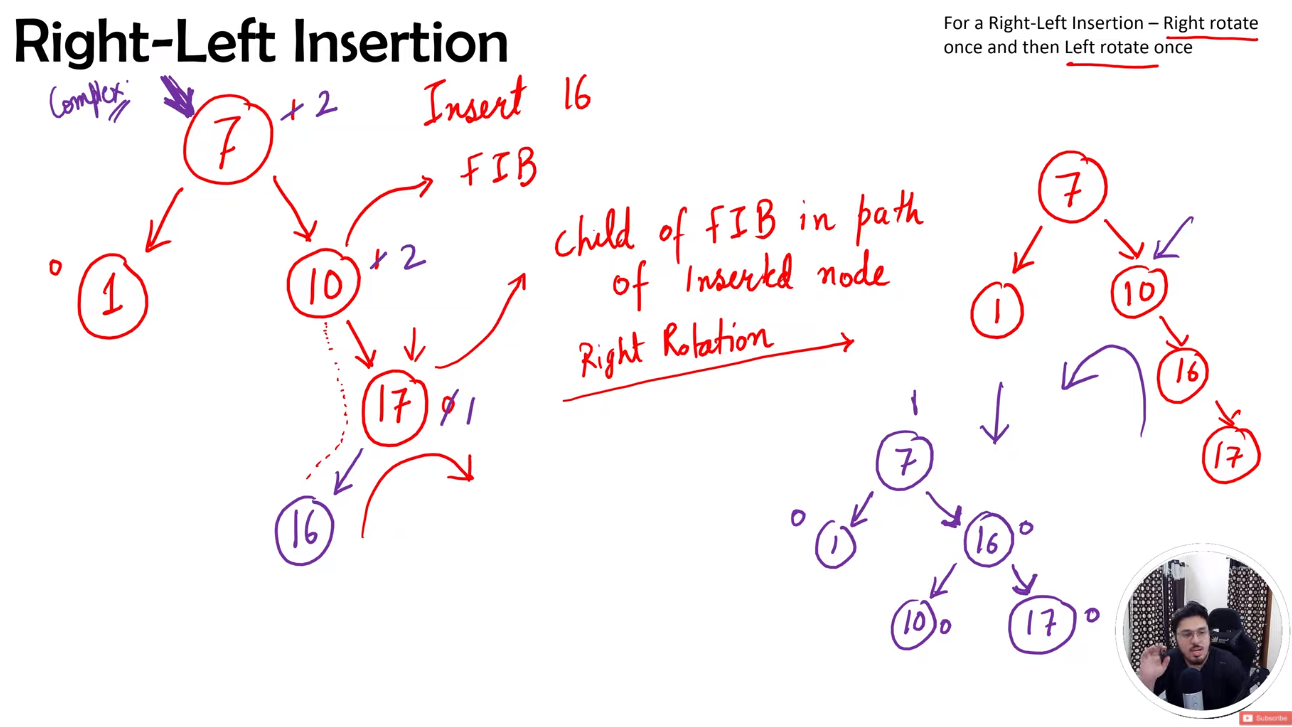 Right-Left Insertion
For a Right-Left Insertion – Right rotate
once and then Left rotate once
Complex
7
+ 2
Insert 16
FIB
0
1
10
+ 2
Child of FIB in path
of Inserted node
Right Rotation
17
0 1
16
7
1
10
16
17
1
7
0
1
16
0
10
0
17
0
Subscribe